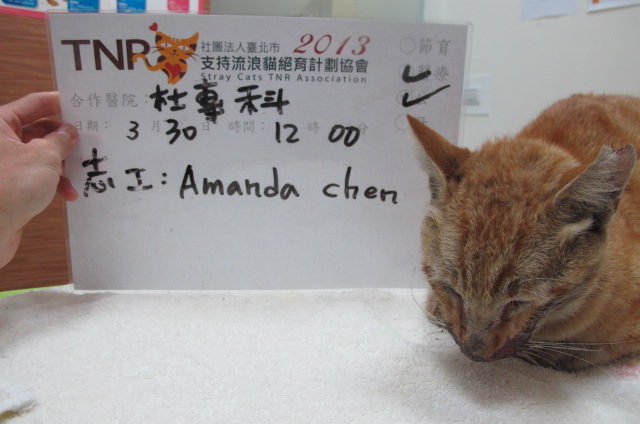 TNR 社團法人臺北市 2013 節育
支持流浪貓絕育計劃協會 醫療
Stray Cats TNR Association
合作醫院：杜瑪科 公
日期： 3 月 30 日 時間： 12 時 00 分 母
志工：Amanda chen